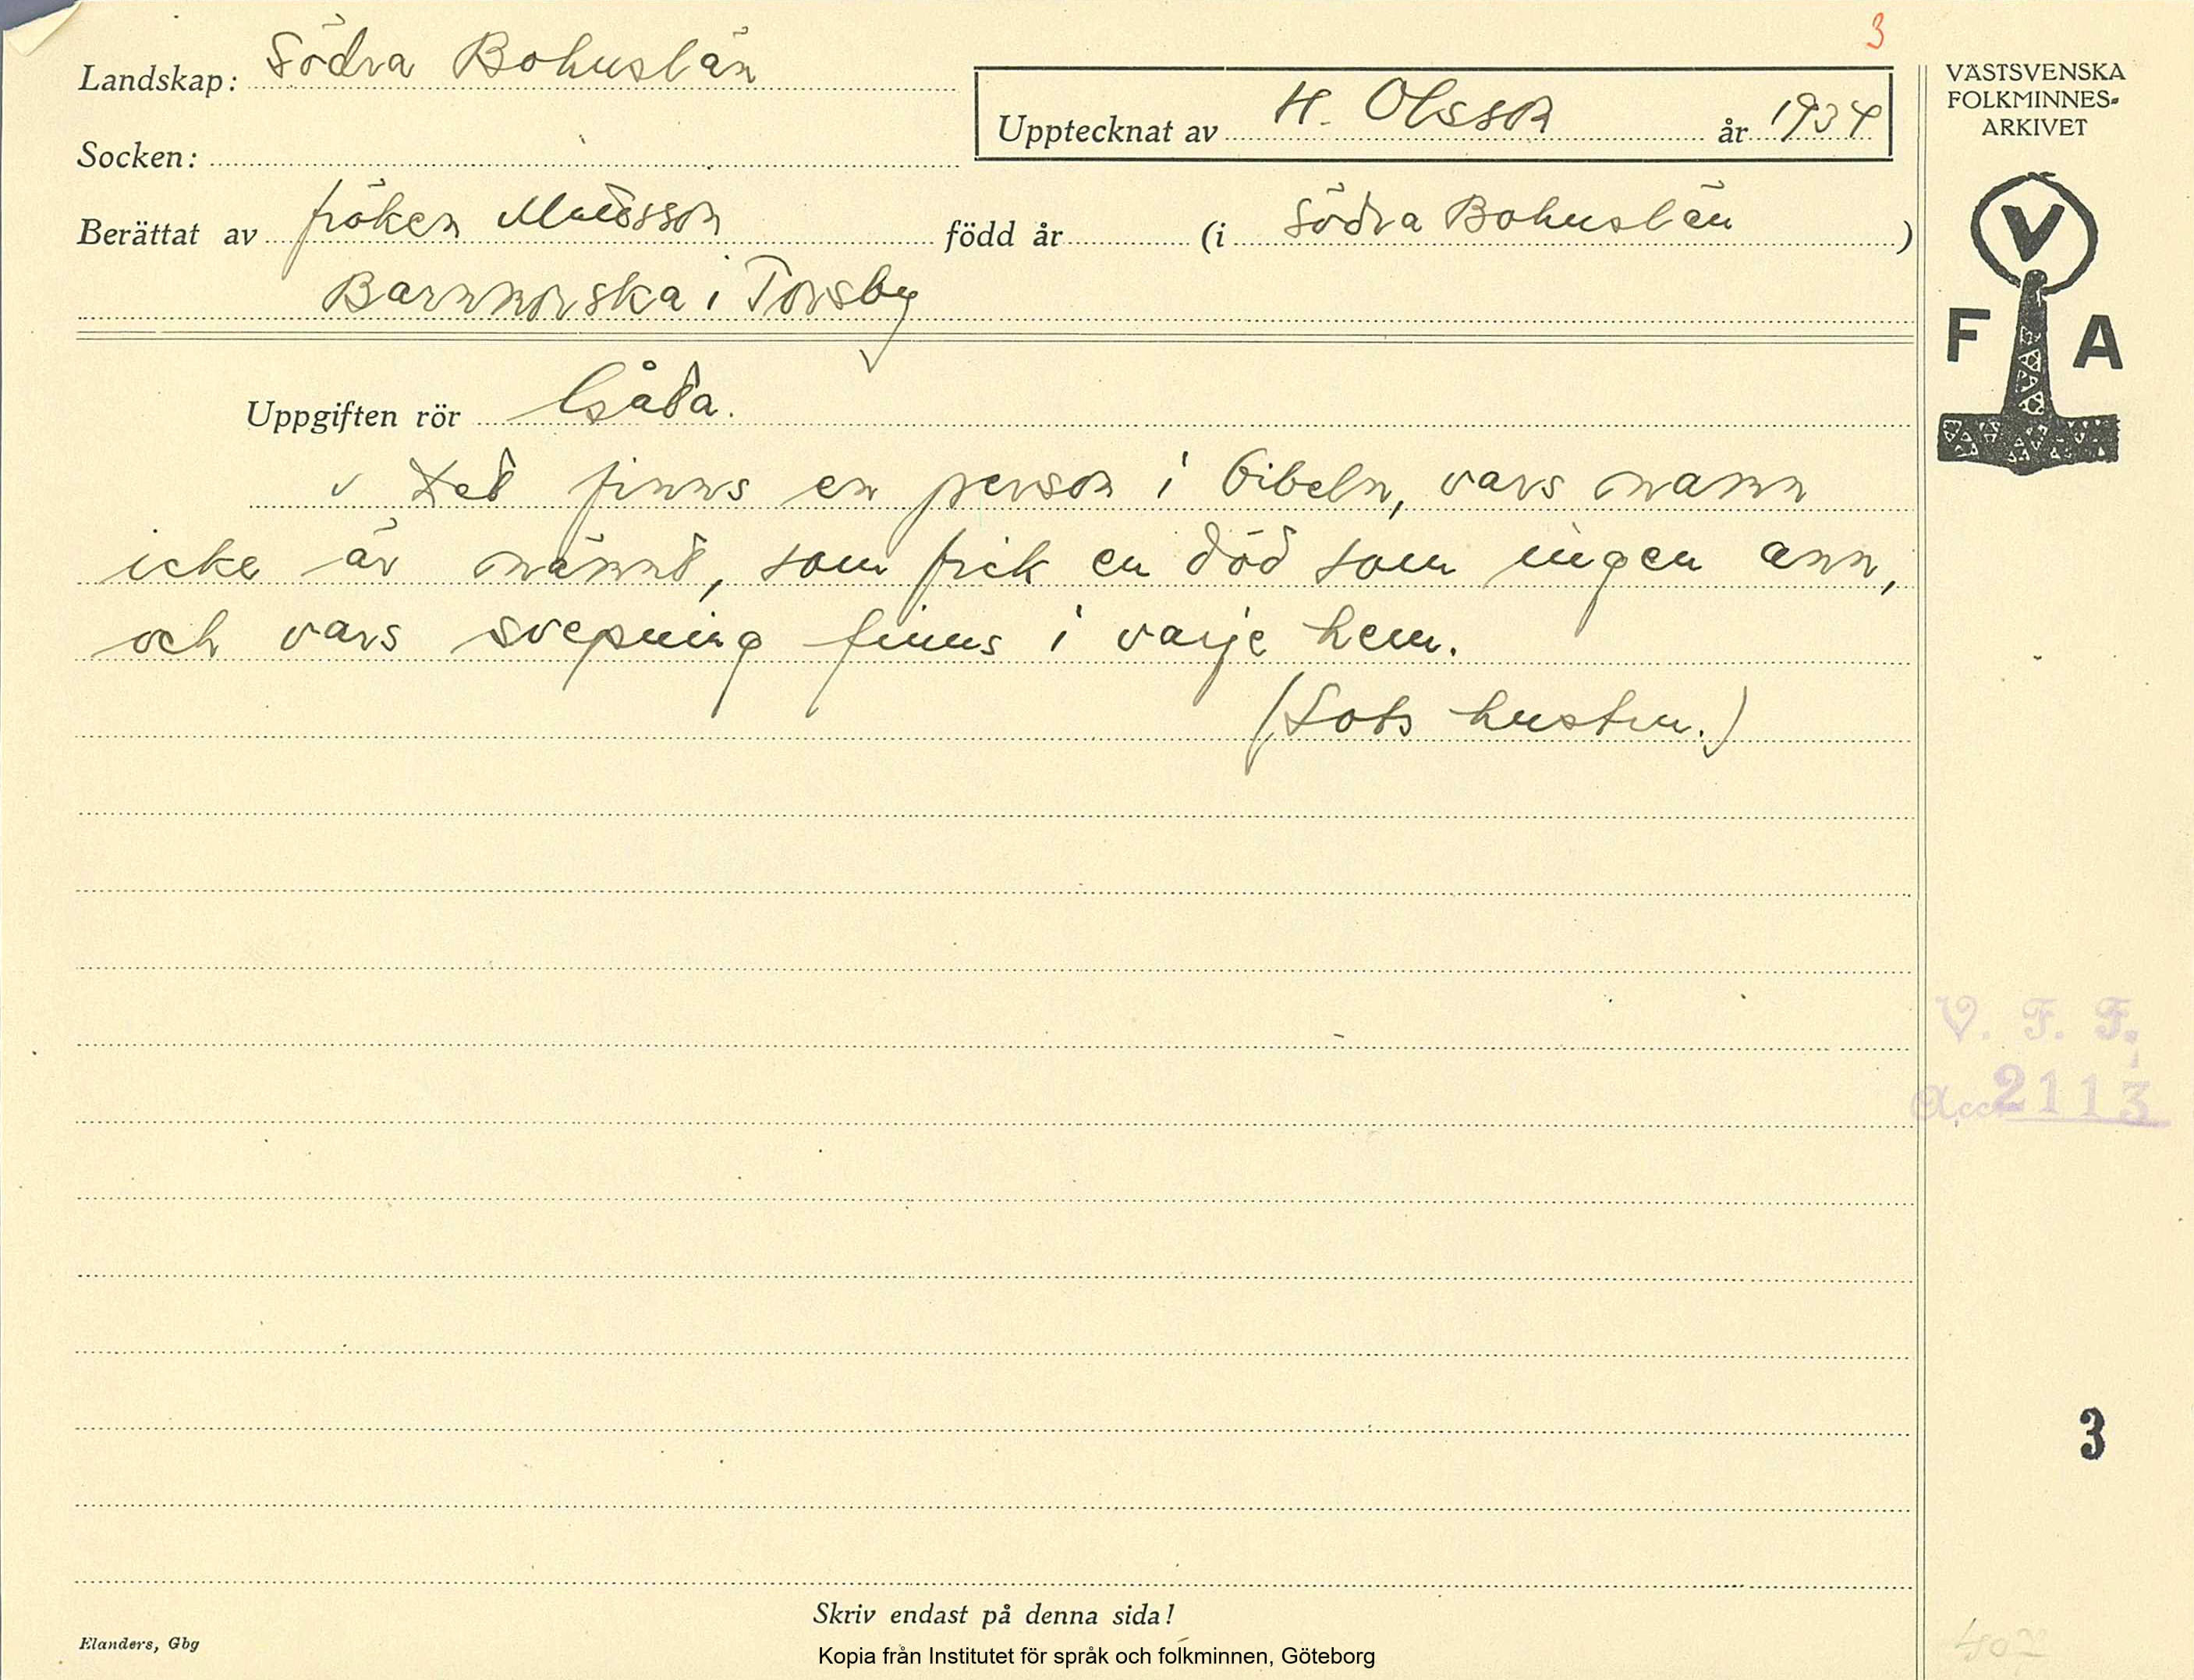 3
Landskap: Södra Bohuslän
Upptecknat av H. Olsson år 1934
Socken:
Berättat av fröken Mattsson född år (i Södra Bohuslän)
Barnmorska i Torsby
Uppgiften rör Gåta.
Det finns en person i bibeln, vars namn
icke är nämnt, som fick en död som ingen ann,
och vars svepning finns i varje hem.
(Lots hustru.)
VÄSTSVENSKA
FOLKMINNES-
ARKIVET
V
F A
V. F. F.
Acc 2113
3
Skriv endast på denna sida!
Elanders, Gbg
Kopia från Institutet för språk och folkminnen, Göteborg